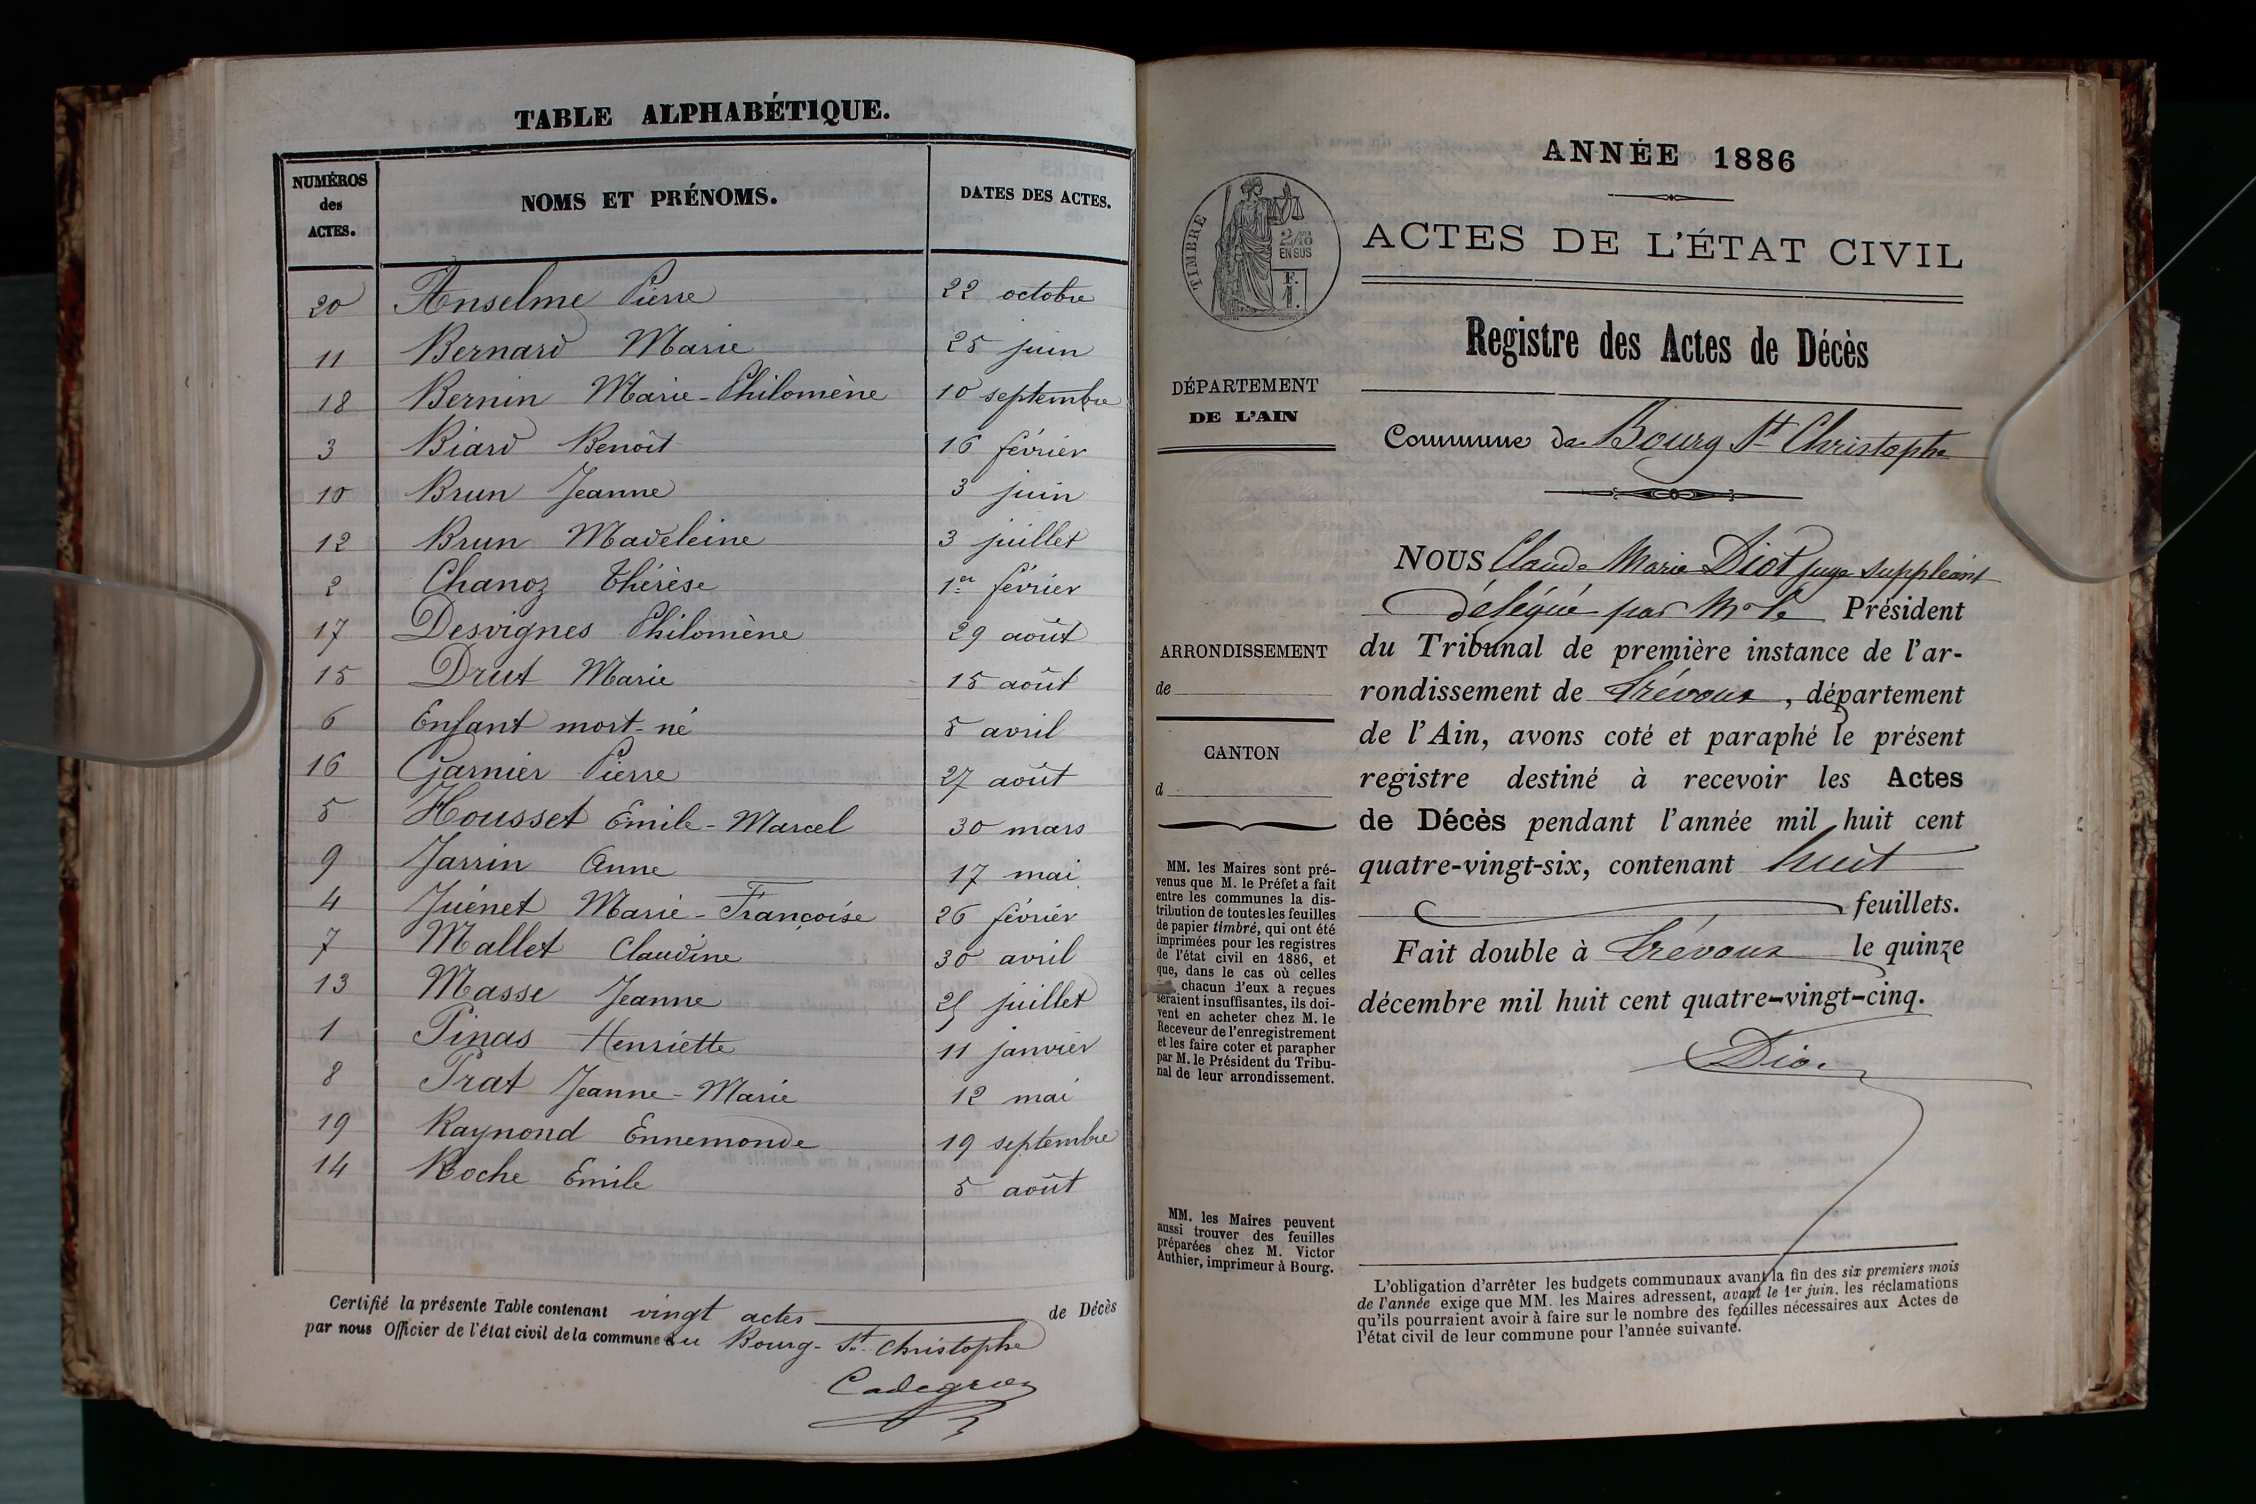 TABLE ALPHABÉTIQUE.
NUMÉROS des ACTES. NOMS ET PRÉNOMS. DATES DES ACTES.
20 Anselme Pierre 22 octobre
11 Bernard Marie 25 juin
18 Bernin Marie-Philomène 10 septembre
3 Biard Benoît 16 février
10 Brun Jeanne 3 juin
12 Brun Madeleine 3 juillet
2 Chanoz Thérèse 1er février
17 Desvignes Philomène 29 août
15 Drut Marie 15 août
6 Enfant mort-né 5 avril
16 Garnier Pierre 27 août
5 Housset Emile-Marcel 30 mars
9 Jarrin Anne 17 mai
4 Juénet Marie-Françoise 26 février
7 Mallet Claudine 30 avril
13 Masse Jeanne juillet
1 Pinas Henriette 11 janvier
8 Prat Jeanne-Marie 12 mai
19 Raynond Ennemonde 19 septembre
14 Roche Emile 5 août
Certifié la présente Table contenant vingt actes de Décès
par nous Officier de l'état civil de la commune du Bourg-St-Christophe
ANNÉE 1886
TIMBRE
2/10
EN SUS
F.
1.
ACTES DE L'ÉTAT CIVIL
Registre des Actes de Décès
DÉPARTEMENT
DE L'AIN
Commune de Bourg St Christophe
NOUS Claude Marie Diot juge suppléant
délégué par Mr le Président
du Tribunal de première instance de l'ar-
rondissement de Trévoux, département
de l'Ain, avons coté et paraphé le présent
registre destiné à recevoir les Actes
de Décès pendant l'année mil huit cent
quatre-vingt-six, contenant huit
feuillets.
Fait double à Trévoux le quinze
décembre mil huit cent quatre-vingt-cinq.
Diot
ARRONDISSEMENT
de
CANTON
d
MM. les Maires sont pré-
venus que M. le Préfet a fait
entre les communes la dis-
tribution de toutes les feuilles
de papier timbré, qui ont été
imprimées pour les registres
de l'état civil en 1886, et
que, dans le cas où celles
chacun d'eux a reçues
seraient insuffisantes, ils doi-
vent en acheter chez M. le
Receveur de l'enregistrement
et les faire coter et parapher
par M. le Président du Tribu-
nal de leur arrondissement.
MM. les Maires peuvent
aussi trouver des feuilles
préparées chez M. Victor
Authier, imprimeur à Bourg.
L'obligation d'arrêter les budgets communaux avant la fin des six premiers mois
de l'année exige que MM. les Maires adressent, avant le 1er juin, les réclamations
qu'ils pourraient avoir à faire sur le nombre des feuilles nécessaires aux Actes de
l'état civil de leur commune pour l'année suivante.